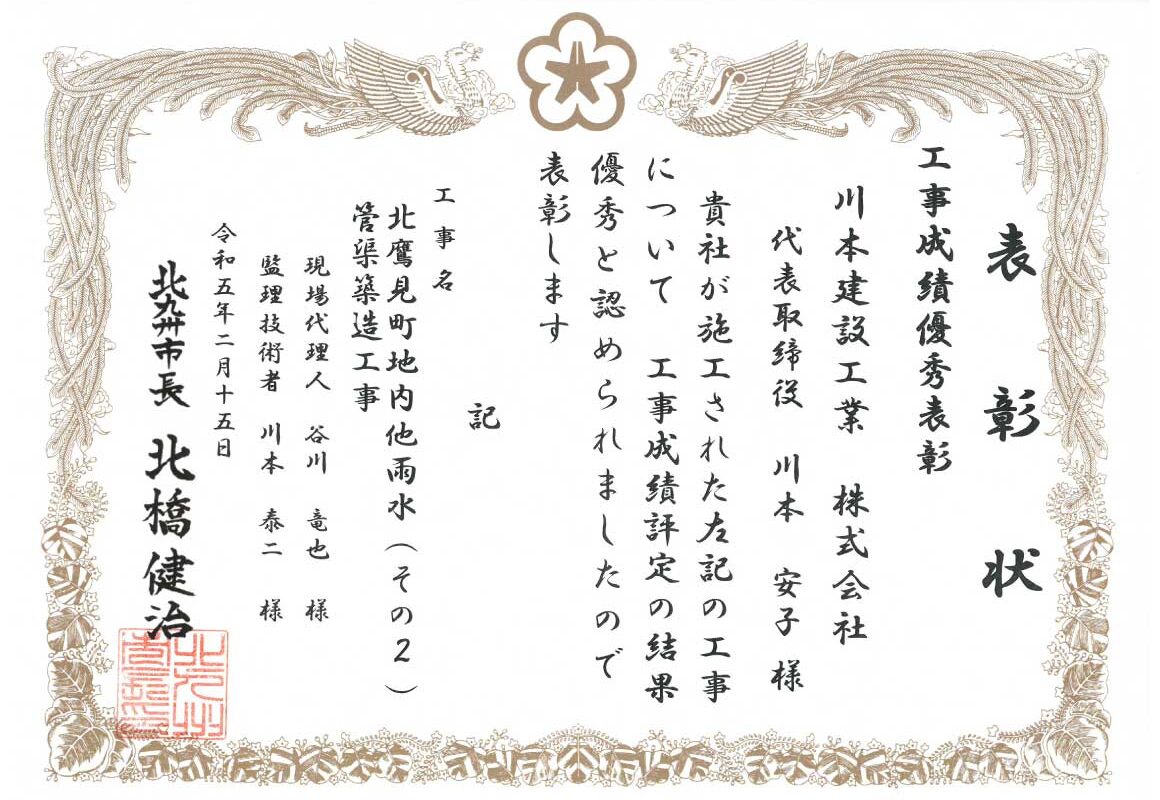 表彰状
工事成績優秀表彰
川本建設工業 株式会社
代表取締役 川本 安子 様
貴社が施工された左記の工事
について 工事成績評定の結果
優秀と認められましたので
表彰します
記
工事名
北鷹見町地内他雨水(その2)
管渠築造工事
現場代理人 谷川 竜也 様
監理技術者 川本 泰二 様
令和五年二月十五日
北九州市長 北橋健治